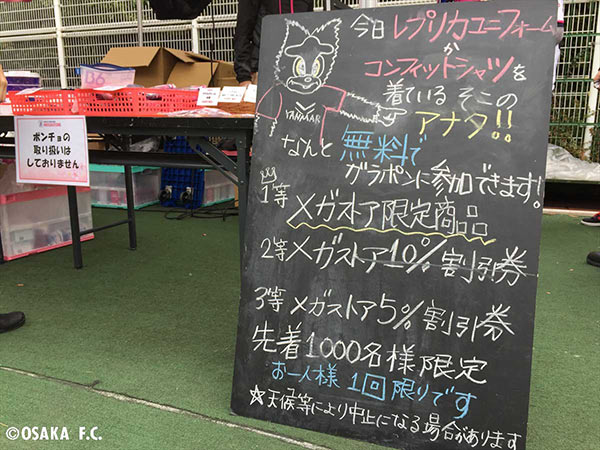 今日レプリカユニフォーム
か
コンフィットシャツを
着ているそこの
アナタ!!
YANMAR
なんと無料で
ガラポンに参加できます!
1等
メガストア限定商品
2等メガストア10%割引券
3等メガストア5%割引券
先着1000名様限定
お一人様1回限りです
☆天候等により中止になる場合があります
ポンチョの
取り扱いは
しておりません
©OSAKA F.C.